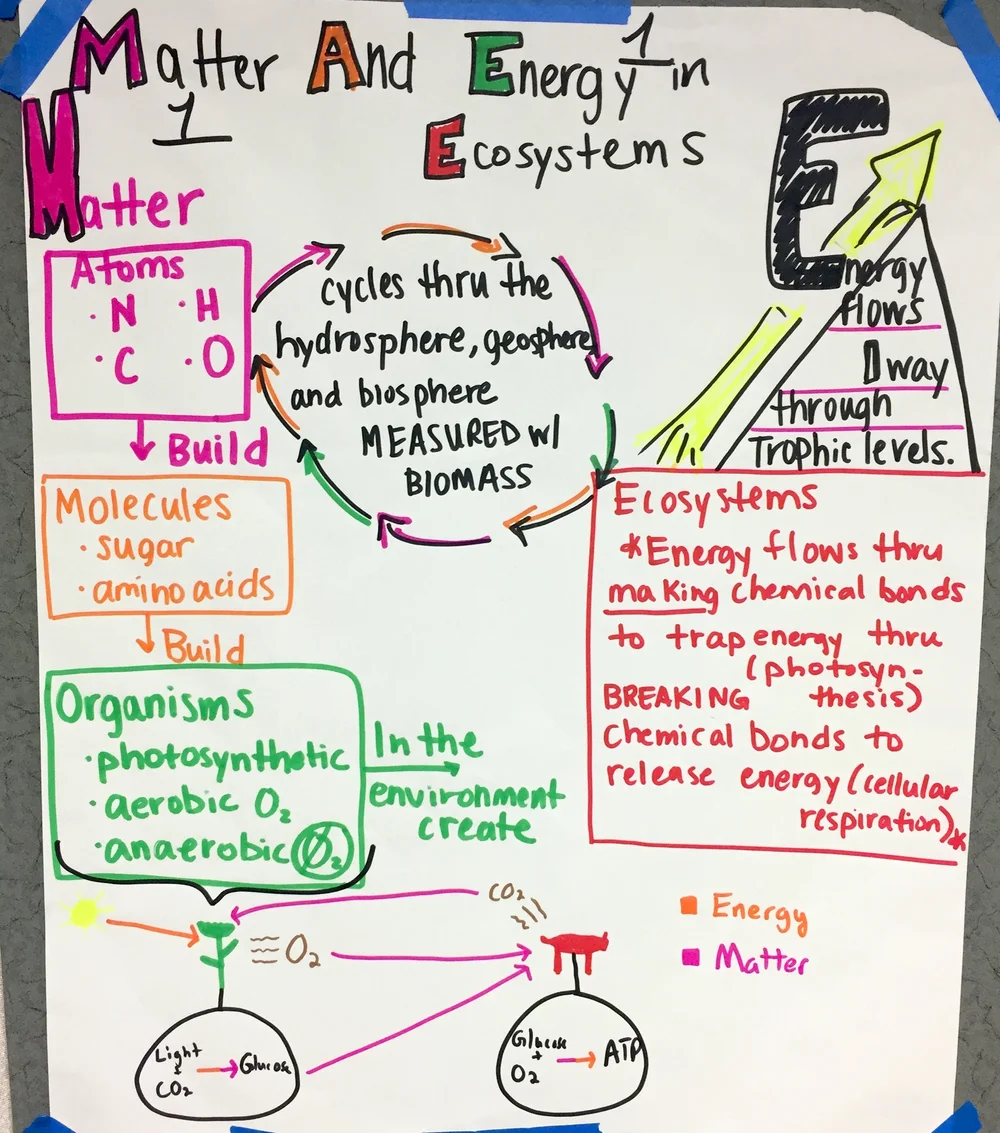 Matter And Energy in
1
1
Ecosystems
Matter
Atoms
· N · H
· C · O
Build
Molecules
· sugar
· amino acids
Build
Organisms
· photosynthetic
· aerobic O₂
· anaerobic O₂
In the
environment
create
cycles thru the
hydrosphere, geosphere
and biosphere
MEASURED W/
BIOMASS
Energy
flows
1 way
through
Trophic levels.
Ecosystems
*Energy flows thru
making chemical bonds
to trap energy thru
(photosyn-
BREAKING thesis)
Chemical bonds to
release energy (cellular
respiration)*
CO₂
O₂
Energy
Matter
Light
+
CO₂
Glucose
Glucose
+
O₂
ATP